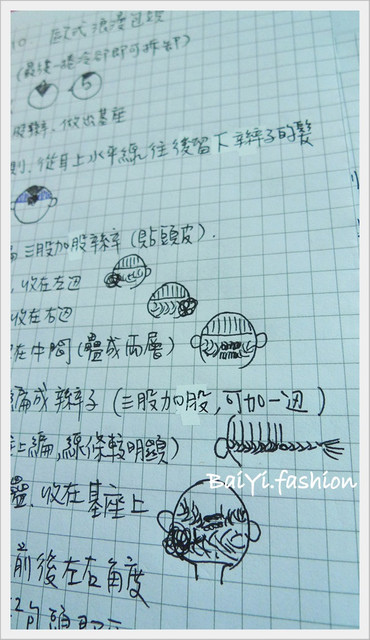 10. 歐式浪漫包頭
(最後一捲冷卻即可拆卸)
5
股辮, 做出基座
則, 從耳上水平線往後留下辮子的髮
編三股加股辮(貼頭皮).
, 收在左迎
收在右迎
在中間(疊成兩層)
編成辮子(三股加股,可加一迎)
上編,線條較明顯)
BaiYi.fashion
疊,收在基座上
前後左右角度